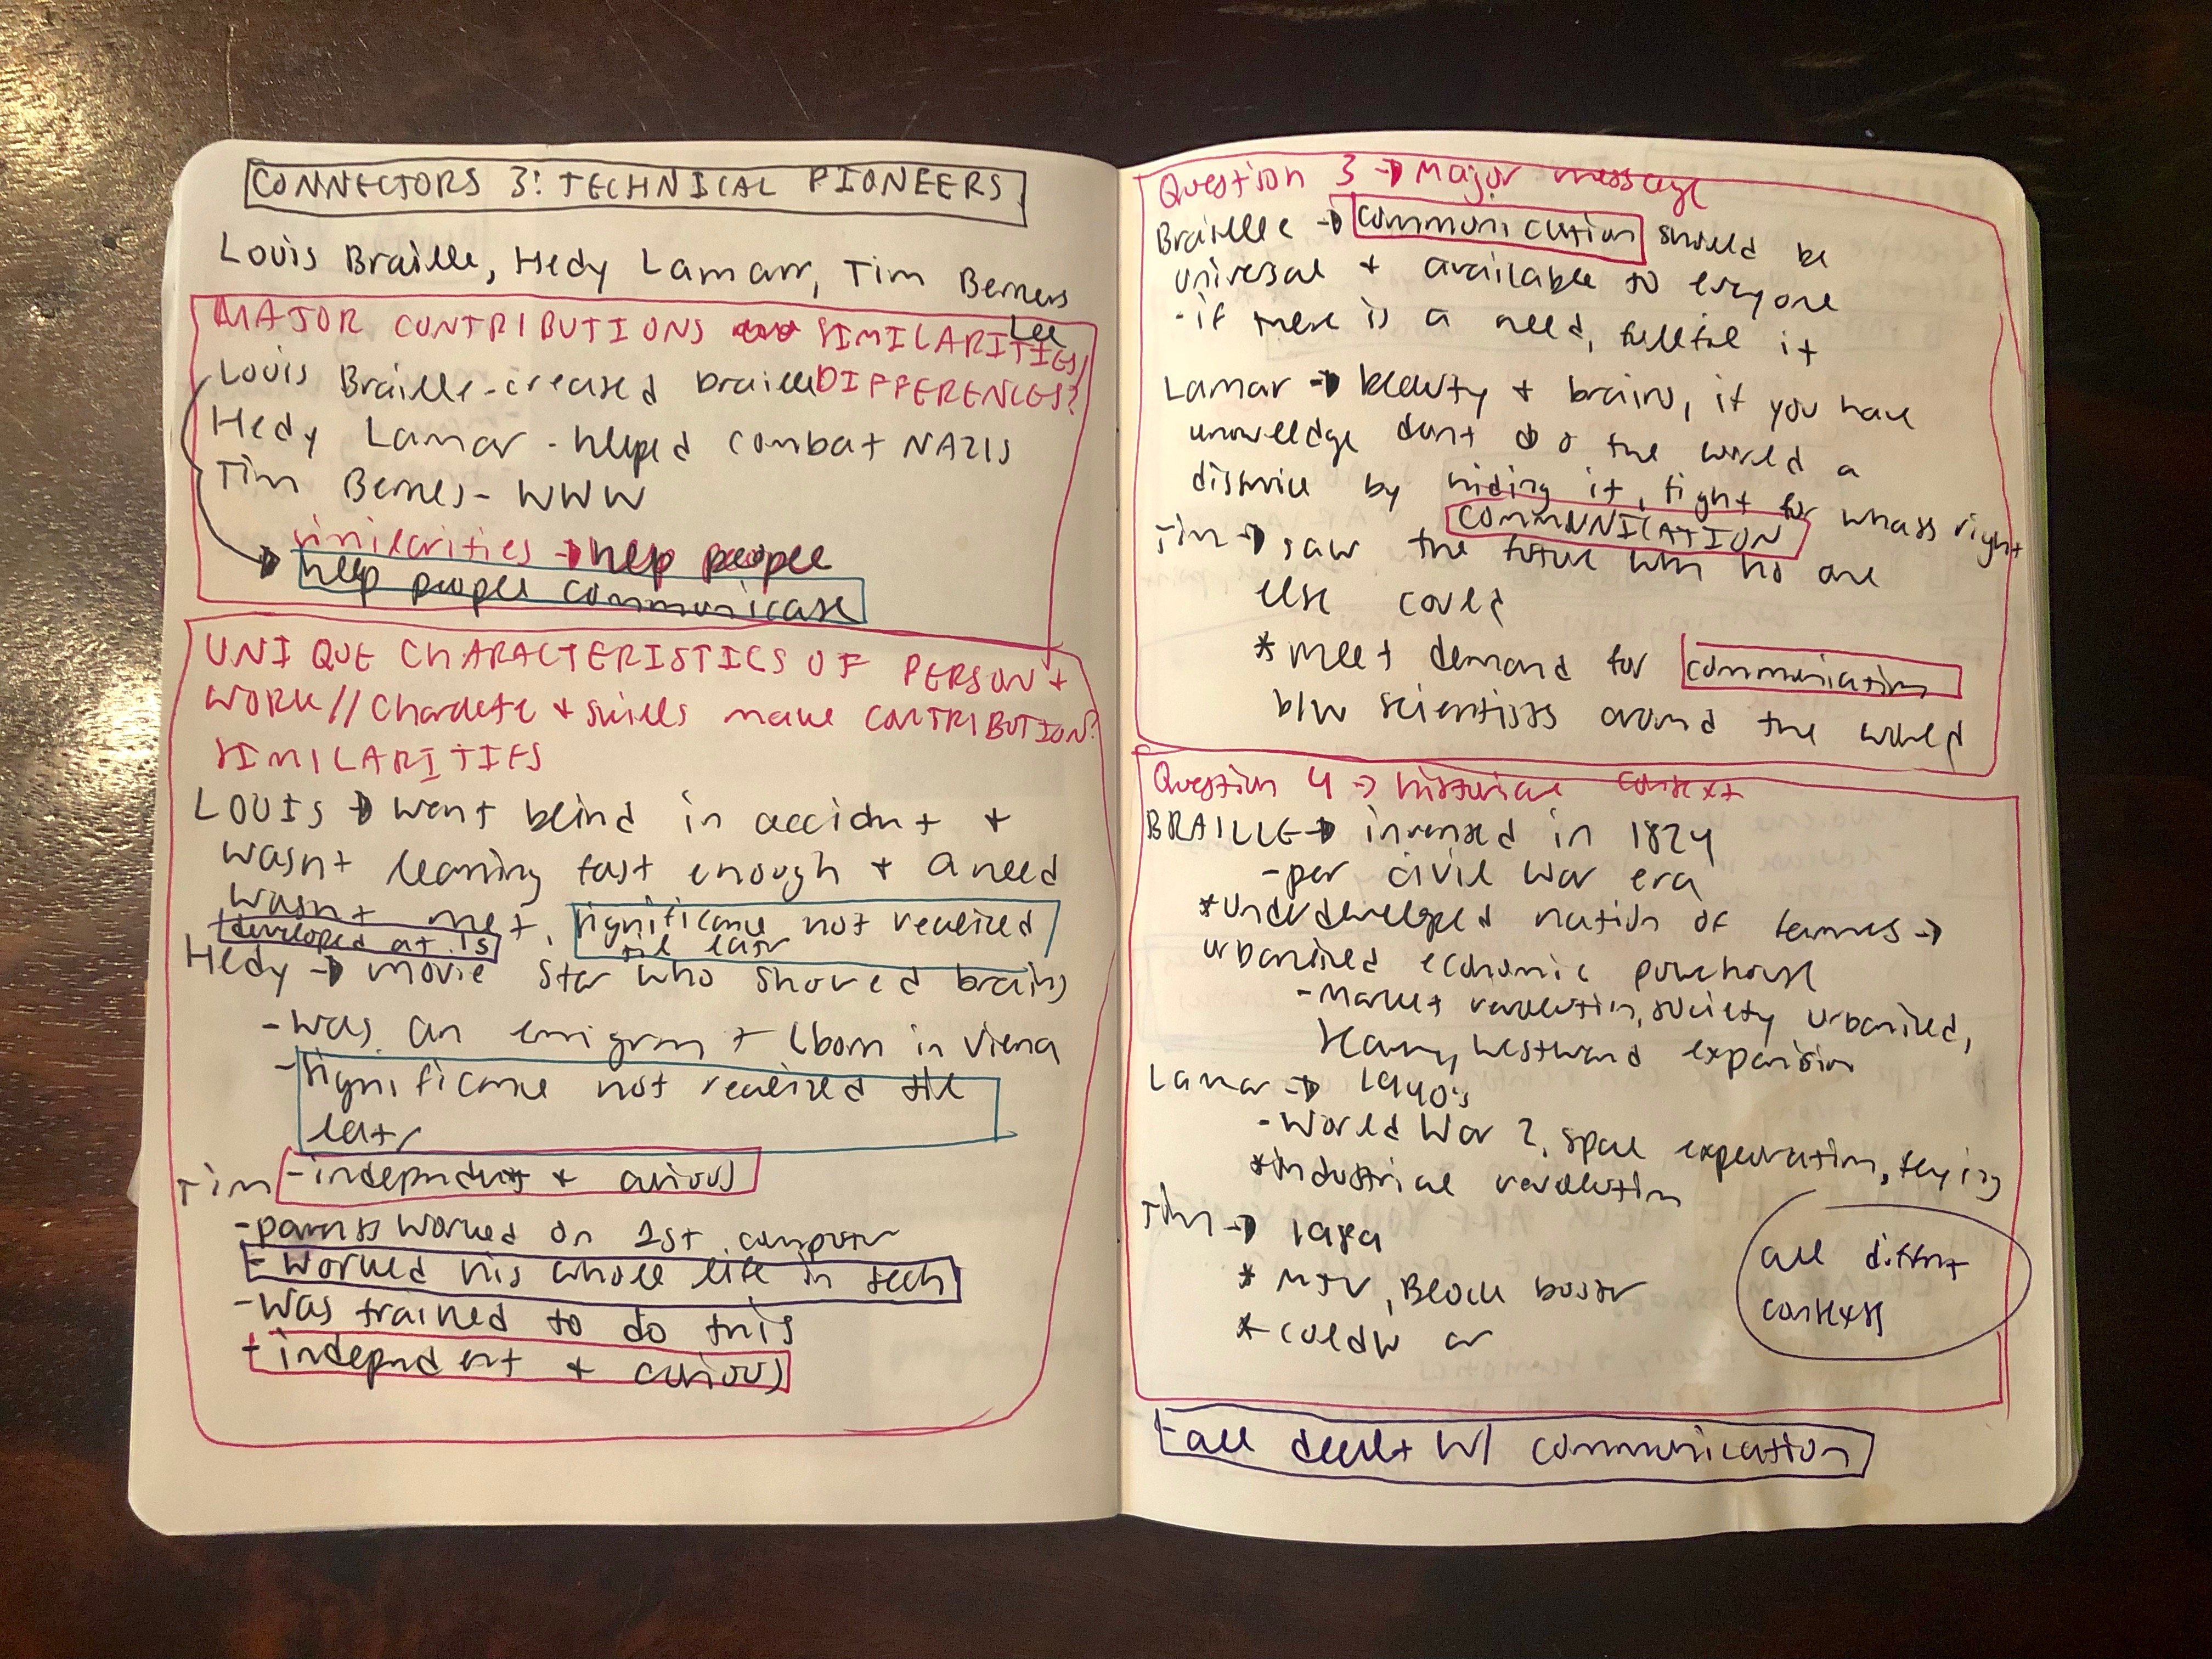 CONNECTORS 3: TECHNICAL PIONEERS
Louis Braille, Hedy Lamarr, Tim Berners
Lee
MAJOR CONTRIBUTIONS SIMILARITIES/
DIFFERENCES?
Louis Braille - created braille
Hedy Lamar - helped combat NAZIS
Tim Bernes - WWW
similarities → help people
help people communicate
UNIQUE CHARACTERISTICS OF PERSON +
WORK // Character + skills make CONTRIBUTION?
SIMILARITIES
LOUIS → went blind in accident +
wasnt learning fast enough + a need
wasnt met. significance not realized
til later
developed at 15
Hedy → movie star who showed brains
- was an emigrant (born in Viena
- significance not realized till
later
- independent + curious
Tim
- parents worked on 1st computer
- worked his whole life in tech
- was trained to do this
+ independent + curious
Question 3 → Major message
Braille → communication should be
universal + available to everyone
- if there is a need, fulfill it
Lamar → beauty + brains, if you have
knowledge dont do the world a
by hiding it, fight for whats right
COMMUNICATION
Tim → saw the future when no one
else could
* meet demand for communication
b/w scientists around the world
Question 4 → historical context
BRAILLE → invented in 1824
- per civil war era
* underdeveloped nation of farmers →
urbanized economic powerhouse
- market revolution, society urbanized,
westward expansion
Lamar → 1940's
- World War 2, space exploration, flying
* industrial revolution
Tim → 1989
* MTV, Block buster
* cold war
all differnt
contexts
- all dealt w/ communication